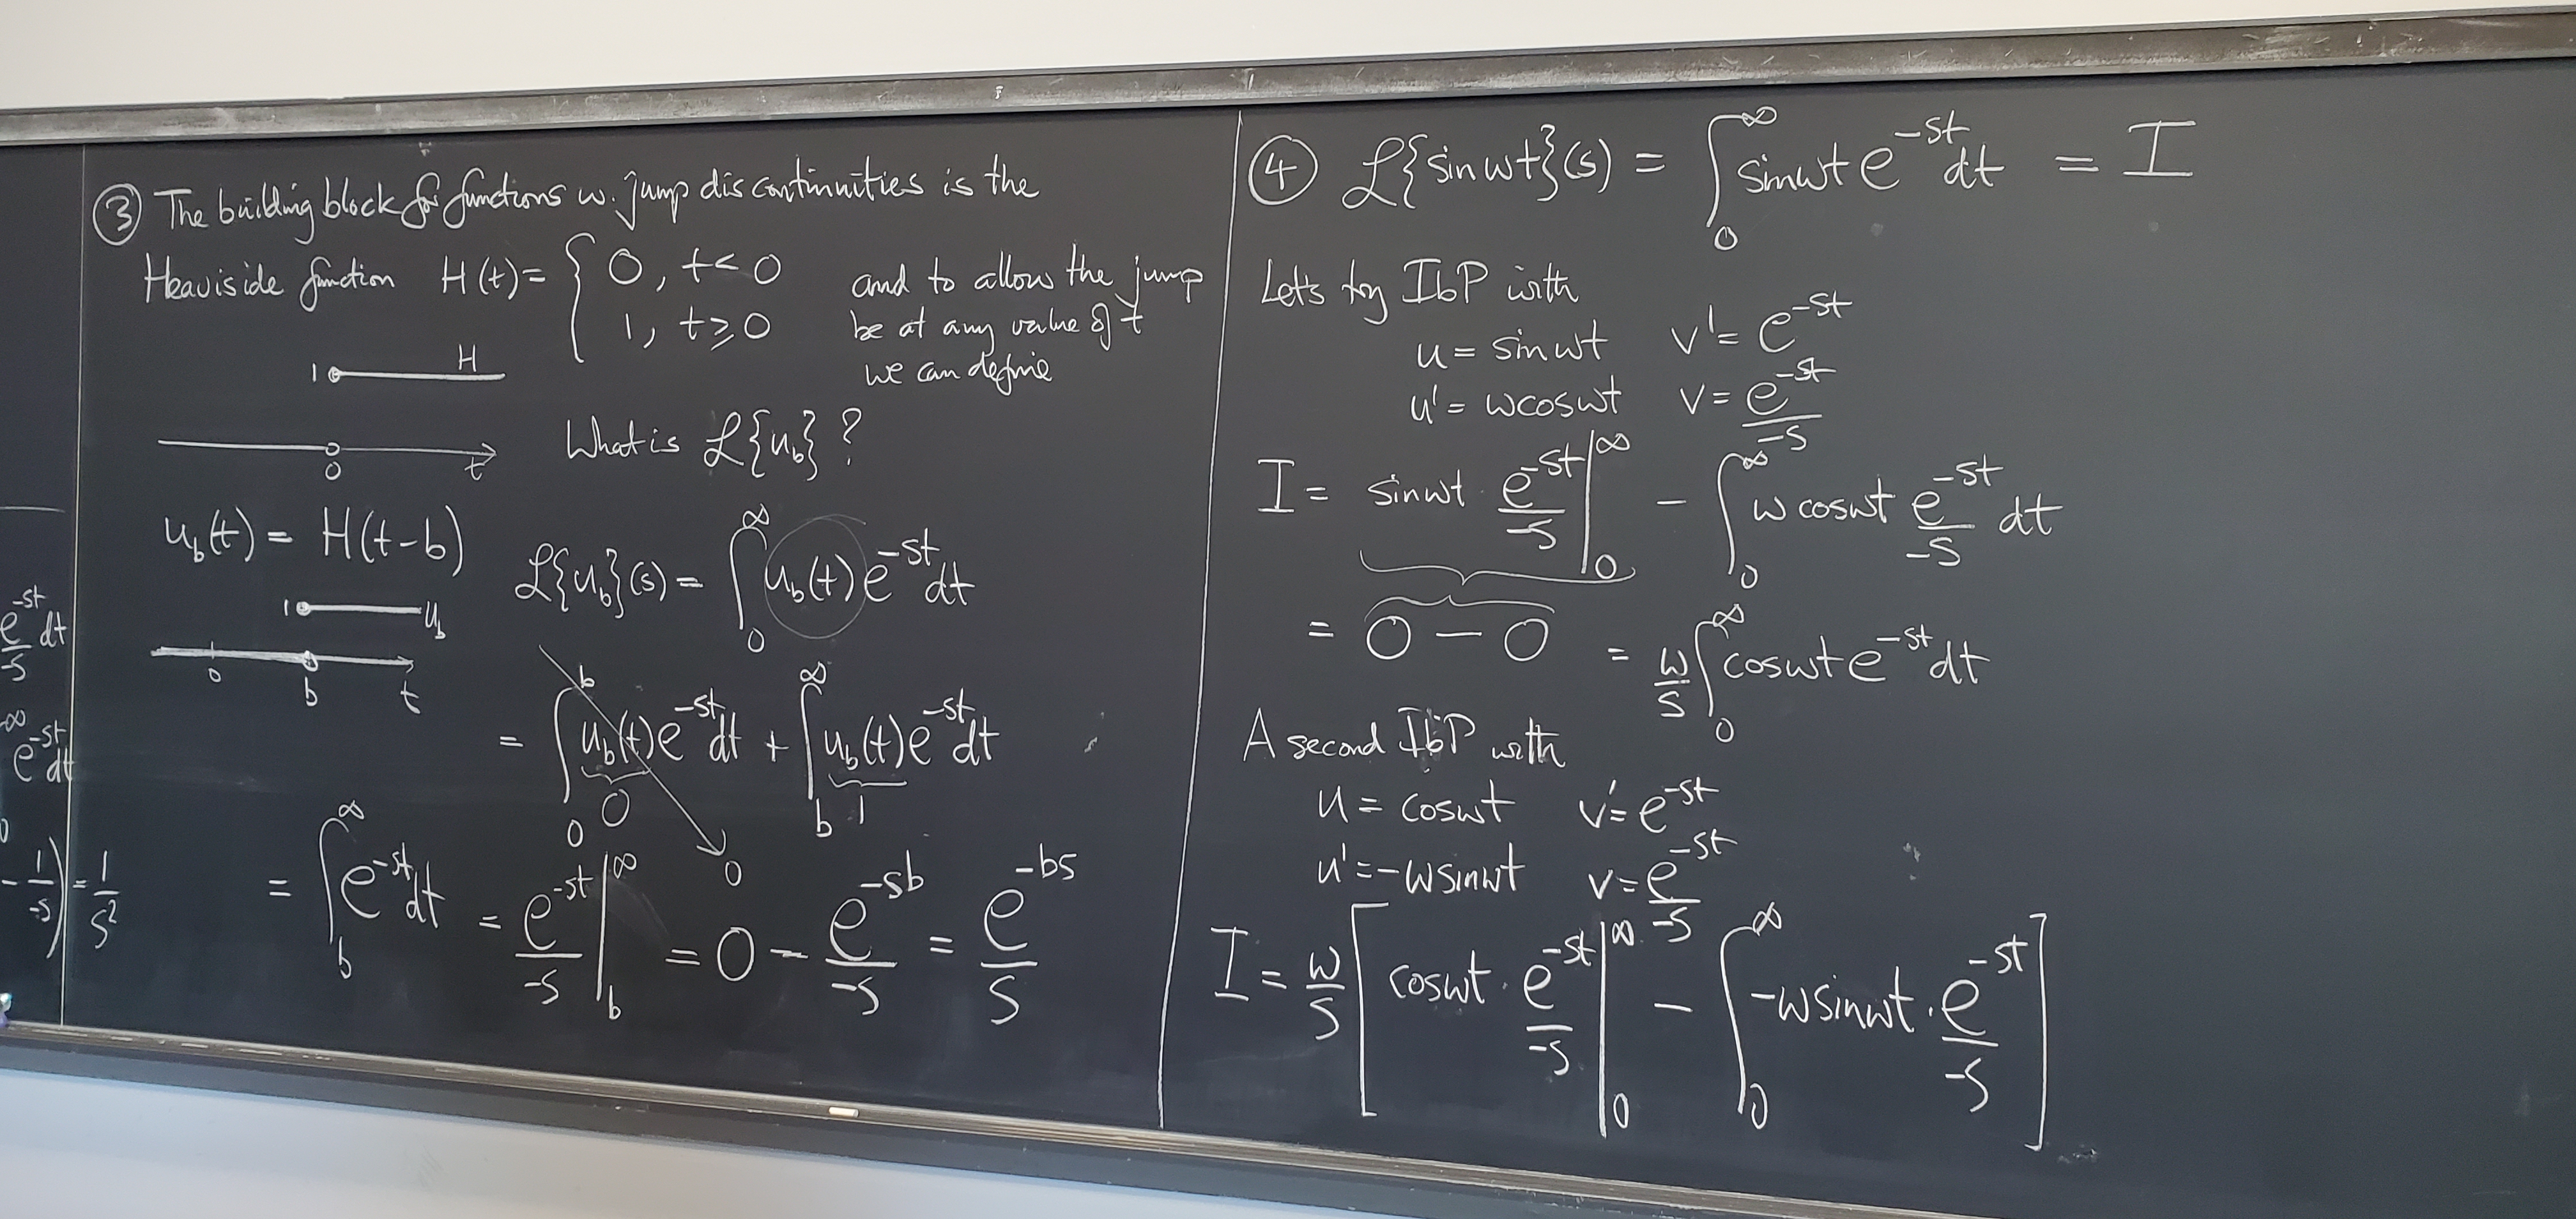 e^{-st}/-s dt
∞
e^{-st} dt
- 1/-s) = 1/s²
③ The building block for functions w. jump discontinuities is the
Heaviside function H(t) = { 0, t < 0
1, t ≥ 0
and to allow the jump
be at any value of t
we can define
1 H
0 t
What is ℒ{u_b}?
u_b(t) = H(t-b)
1 u_b
0 b t
ℒ{u_b}(s) = ∫_0^∞ u_b(t) e^{-st} dt
= ∫_0^b u_b(t) e^{-st} dt + ∫_b^∞ u_b(t) e^{-st} dt
0 1
0
= ∫_b^∞ e^{-st} dt = e^{-st}/-s |_b^∞ = 0 - e^{-sb}/-s = e^{-bs}/s
④ ℒ{sin wt}(s) = ∫_0^∞ sin wt e^{-st} dt = I
Lets try IbP with
u = sin wt v' = e^{-st}
u' = w cos wt v = e^{-st}/-s
I = sin wt · e^{-st}/-s |_0^∞ - ∫_0^∞ w cos wt e^{-st}/-s dt
= 0 - 0 = w/s ∫_0^∞ cos wt e^{-st} dt
A second IbP with
u = cos wt v' = e^{-st}
u' = -w sin wt v = e^{-st}/-s
I = w/s [ cos wt · e^{-st}/-s |_0^∞ - ∫_0^∞ -w sin wt · e^{-st}/-s ]